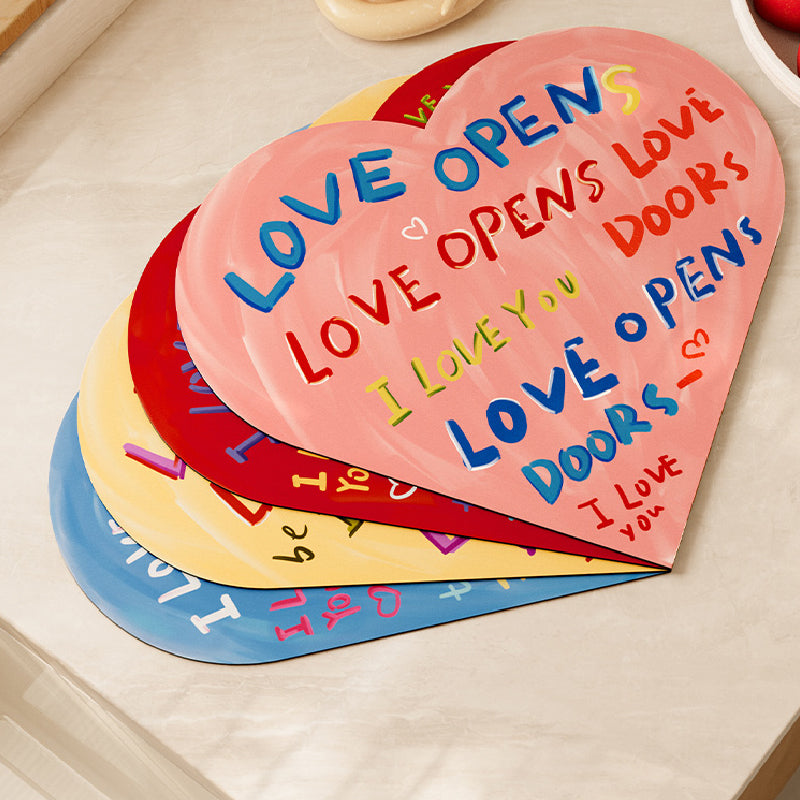 LOVE OPENS
LOVE OPENS LOVE
DOORS
I LOVE YOU
LOVE OPENS
DOORS
I LOVE
you
I
YO
be
I LO
I